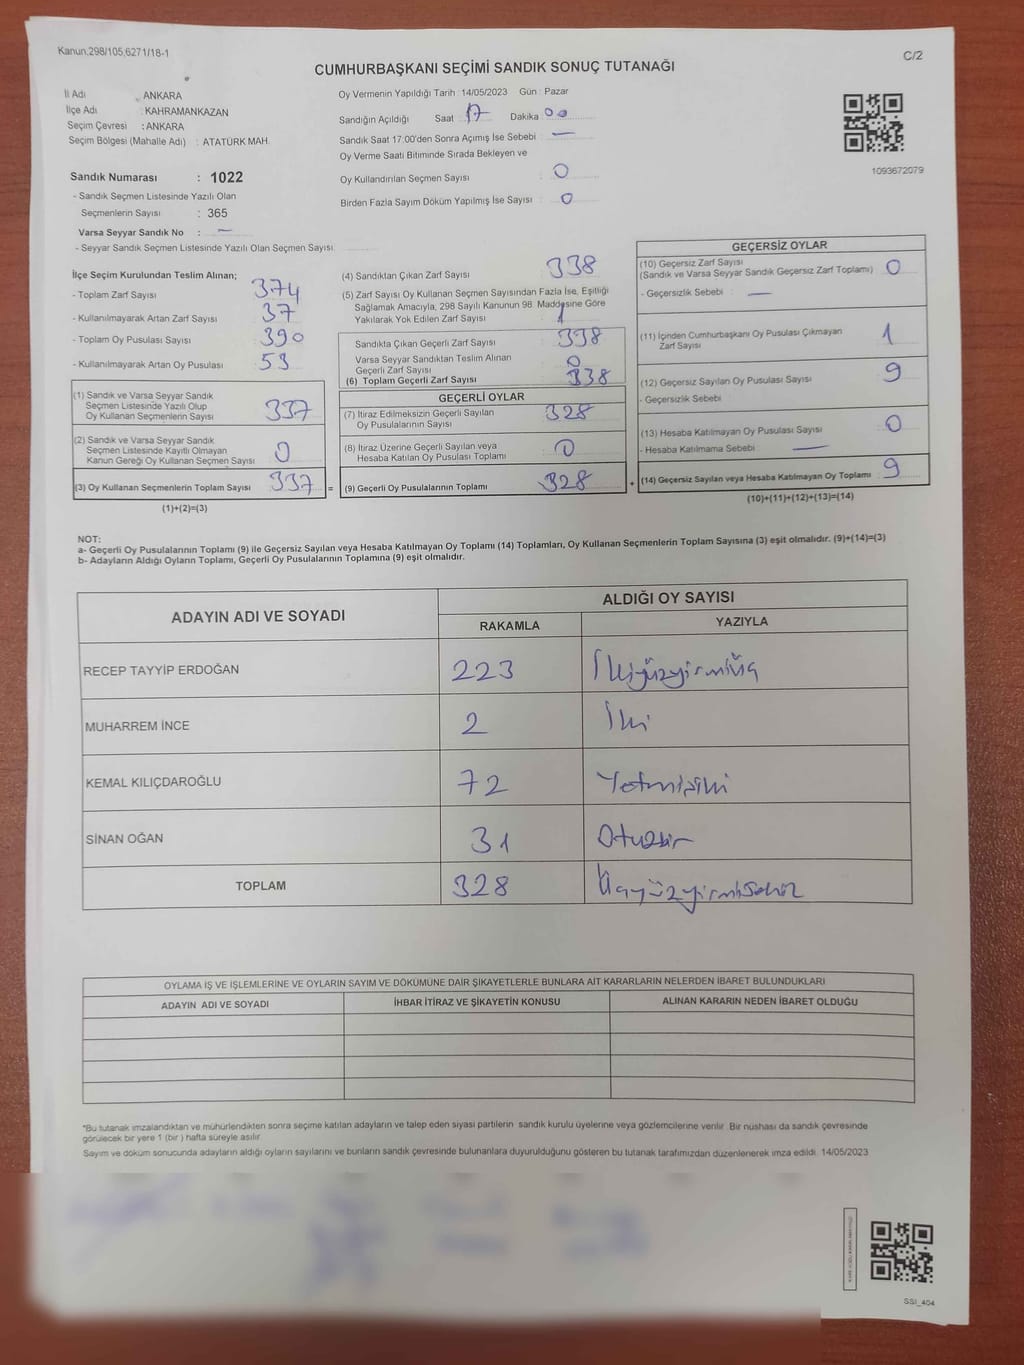 Kanun.298/105,6271/18-1
C/2
CUMHURBAŞKANI SEÇİMİ SANDIK SONUÇ TUTANAĞI
İl Adı : ANKARA
İlçe Adı : KAHRAMANKAZAN
Seçim Çevresi : ANKARA
Seçim Bölgesi (Mahalle Adı) : ATATÜRK MAH.
Oy Vermenin Yapıldığı Tarih : 14/05/2023 Gün : Pazar
Sandığın Açıldığı Saat 17 Dakika 00
Sandık Saat 17:00'den Sonra Açımış İse Sebebi : —
Oy Verme Saati Bitiminde Sırada Bekleyen ve
Oy Kullandırılan Seçmen Sayısı : 0
Birden Fazla Sayım Döküm Yapılmış İse Sayısı : 0
1093672079
Sandık Numarası : 1022
- Sandık Seçmen Listesinde Yazılı Olan
Seçmenlerin Sayısı : 365
Varsa Seyyar Sandık No : —
- Seyyar Sandık Seçmen Listesinde Yazılı Olan Seçmen Sayısı
İlçe Seçim Kurulundan Teslim Alınan;
- Toplam Zarf Sayısı 374
- Kullanılmayarak Artan Zarf Sayısı 37
- Toplam Oy Pusulası Sayısı 390
- Kullanılmayarak Artan Oy Pusulası 53
(1) Sandık ve Varsa Seyyar Sandık
Seçmen Listesinde Yazılı Olup
Oy Kullanan Seçmenlerin Sayısı 337
(2) Sandık ve Varsa Seyyar Sandık
Seçmen Listesinde Kayıtlı Olmayan
Kanun Gereği Oy Kullanan Seçmen Sayısı 0
(3) Oy Kullanan Seçmenlerin Toplam Sayısı 337 =
(1)+(2)=(3)
(4) Sandıktan Çıkan Zarf Sayısı 338
(5) Zarf Sayısı Oy Kullanan Seçmen Sayısından Fazla İse, Eşitliği
Sağlamak Amacıyla, 298 Sayılı Kanunun 98. Maddesine Göre
Yakılarak Yok Edilen Zarf Sayısı 1
Sandıkta Çıkan Geçerli Zarf Sayısı 338
Varsa Seyyar Sandıktan Teslim Alınan
Geçerli Zarf Sayısı 0
(6) Toplam Geçerli Zarf Sayısı 338
GEÇERLİ OYLAR
(7) İtiraz Edilmeksizin Geçerli Sayılan
Oy Pusulalarının Sayısı 328
(8) İtiraz Üzerine Geçerli Sayılan veya
Hesaba Katılan Oy Pusulası Toplamı 0
(9) Geçerli Oy Pusulalarının Toplamı 328 +
GEÇERSİZ OYLAR
(10) Geçersiz Zarf Sayısı
(Sandık ve Varsa Seyyar Sandık Geçersiz Zarf Toplamı) 0
- Geçersizlik Sebebi : —
(11) İçinden Cumhurbaşkanı Oy Pusulası Çıkmayan
Zarf Sayısı 1
(12) Geçersiz Sayılan Oy Pusulası Sayısı 9
- Geçersizlik Sebebi :
(13) Hesaba Katılmayan Oy Pusulası Sayısı 0
- Hesaba Katılmama Sebebi : —
(14) Geçersiz Sayılan veya Hesaba Katılmayan Oy Toplamı 9
(10)+(11)+(12)+(13)=(14)
NOT:
a- Geçerli Oy Pusulalarının Toplamı (9) ile Geçersiz Sayılan veya Hesaba Katılmayan Oy Toplamı (14) Toplamları, Oy Kullanan Seçmenlerin Toplam Sayısına (3) eşit olmalıdır. (9)+(14)=(3)
b- Adayların Aldığı Oyların Toplamı, Geçerli Oy Pusulalarının Toplamına (9) eşit olmalıdır.
ADAYIN ADI VE SOYADI
ALDIĞI OY SAYISI
RAKAMLA YAZIYLA
RECEP TAYYİP ERDOĞAN 223 İkiyüzyirmiüç
MUHARREM İNCE 2 İki
KEMAL KILIÇDAROĞLU 72 Yetmişiki
SİNAN OĞAN 31 Otuzbir
TOPLAM 328 Üçyüzyirmisekiz
OYLAMA İŞ VE İŞLEMLERİNE VE OYLARIN SAYIM VE DÖKÜMÜNE DAİR ŞİKAYETLERLE BUNLARA AİT KARARLARIN NELERDEN İBARET BULUNDUKLARI
ADAYIN ADI VE SOYADI İHBAR İTİRAZ VE ŞİKAYETİN KONUSU ALINAN KARARIN NEDEN İBARET OLDUĞU
*Bu tutanak imzalandıktan ve mühürlendikten sonra seçime katılan adayların ve talep eden siyasi partilerin sandık kurulu üyelerine veya gözlemcilerine verilir. Bir nüshası da sandık çevresinde
görülecek bir yere 1 (bir) hafta süreyle asılır.
Sayım ve döküm sonucunda adayların aldığı oyların sayılarını ve bunların sandık çevresinde bulunanlara duyurulduğunu gösteren bu tutanak tarafımızdan düzenlenerek imza edildi. 14/05/2023
SSI_404